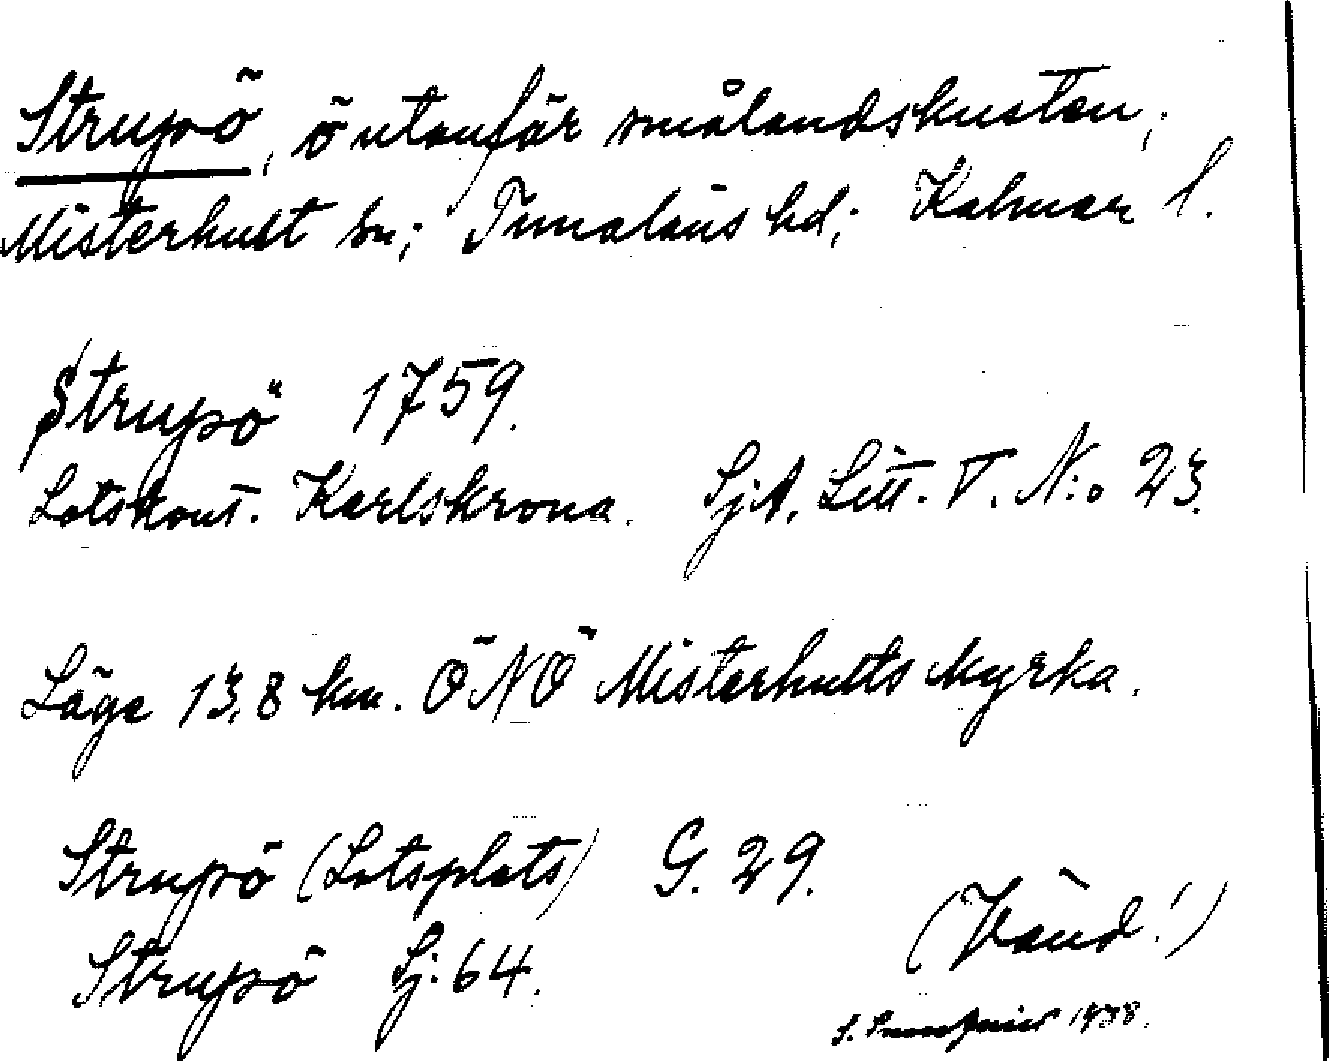 Strupö, ö utanför smålandskusten,
Misterhult sn; Tunaläns hd; Kalmar l.
Strupö 1759.
Lotskont. Karlskrona. SjA. Litt. V. N:o 23.
Läge 13,8 km. ÖNÖ Misterhults kyrka.
Strupö (Lotsplats) G. 29.
Strupö Sj. 64.
(Vänd!)
S. 1938.